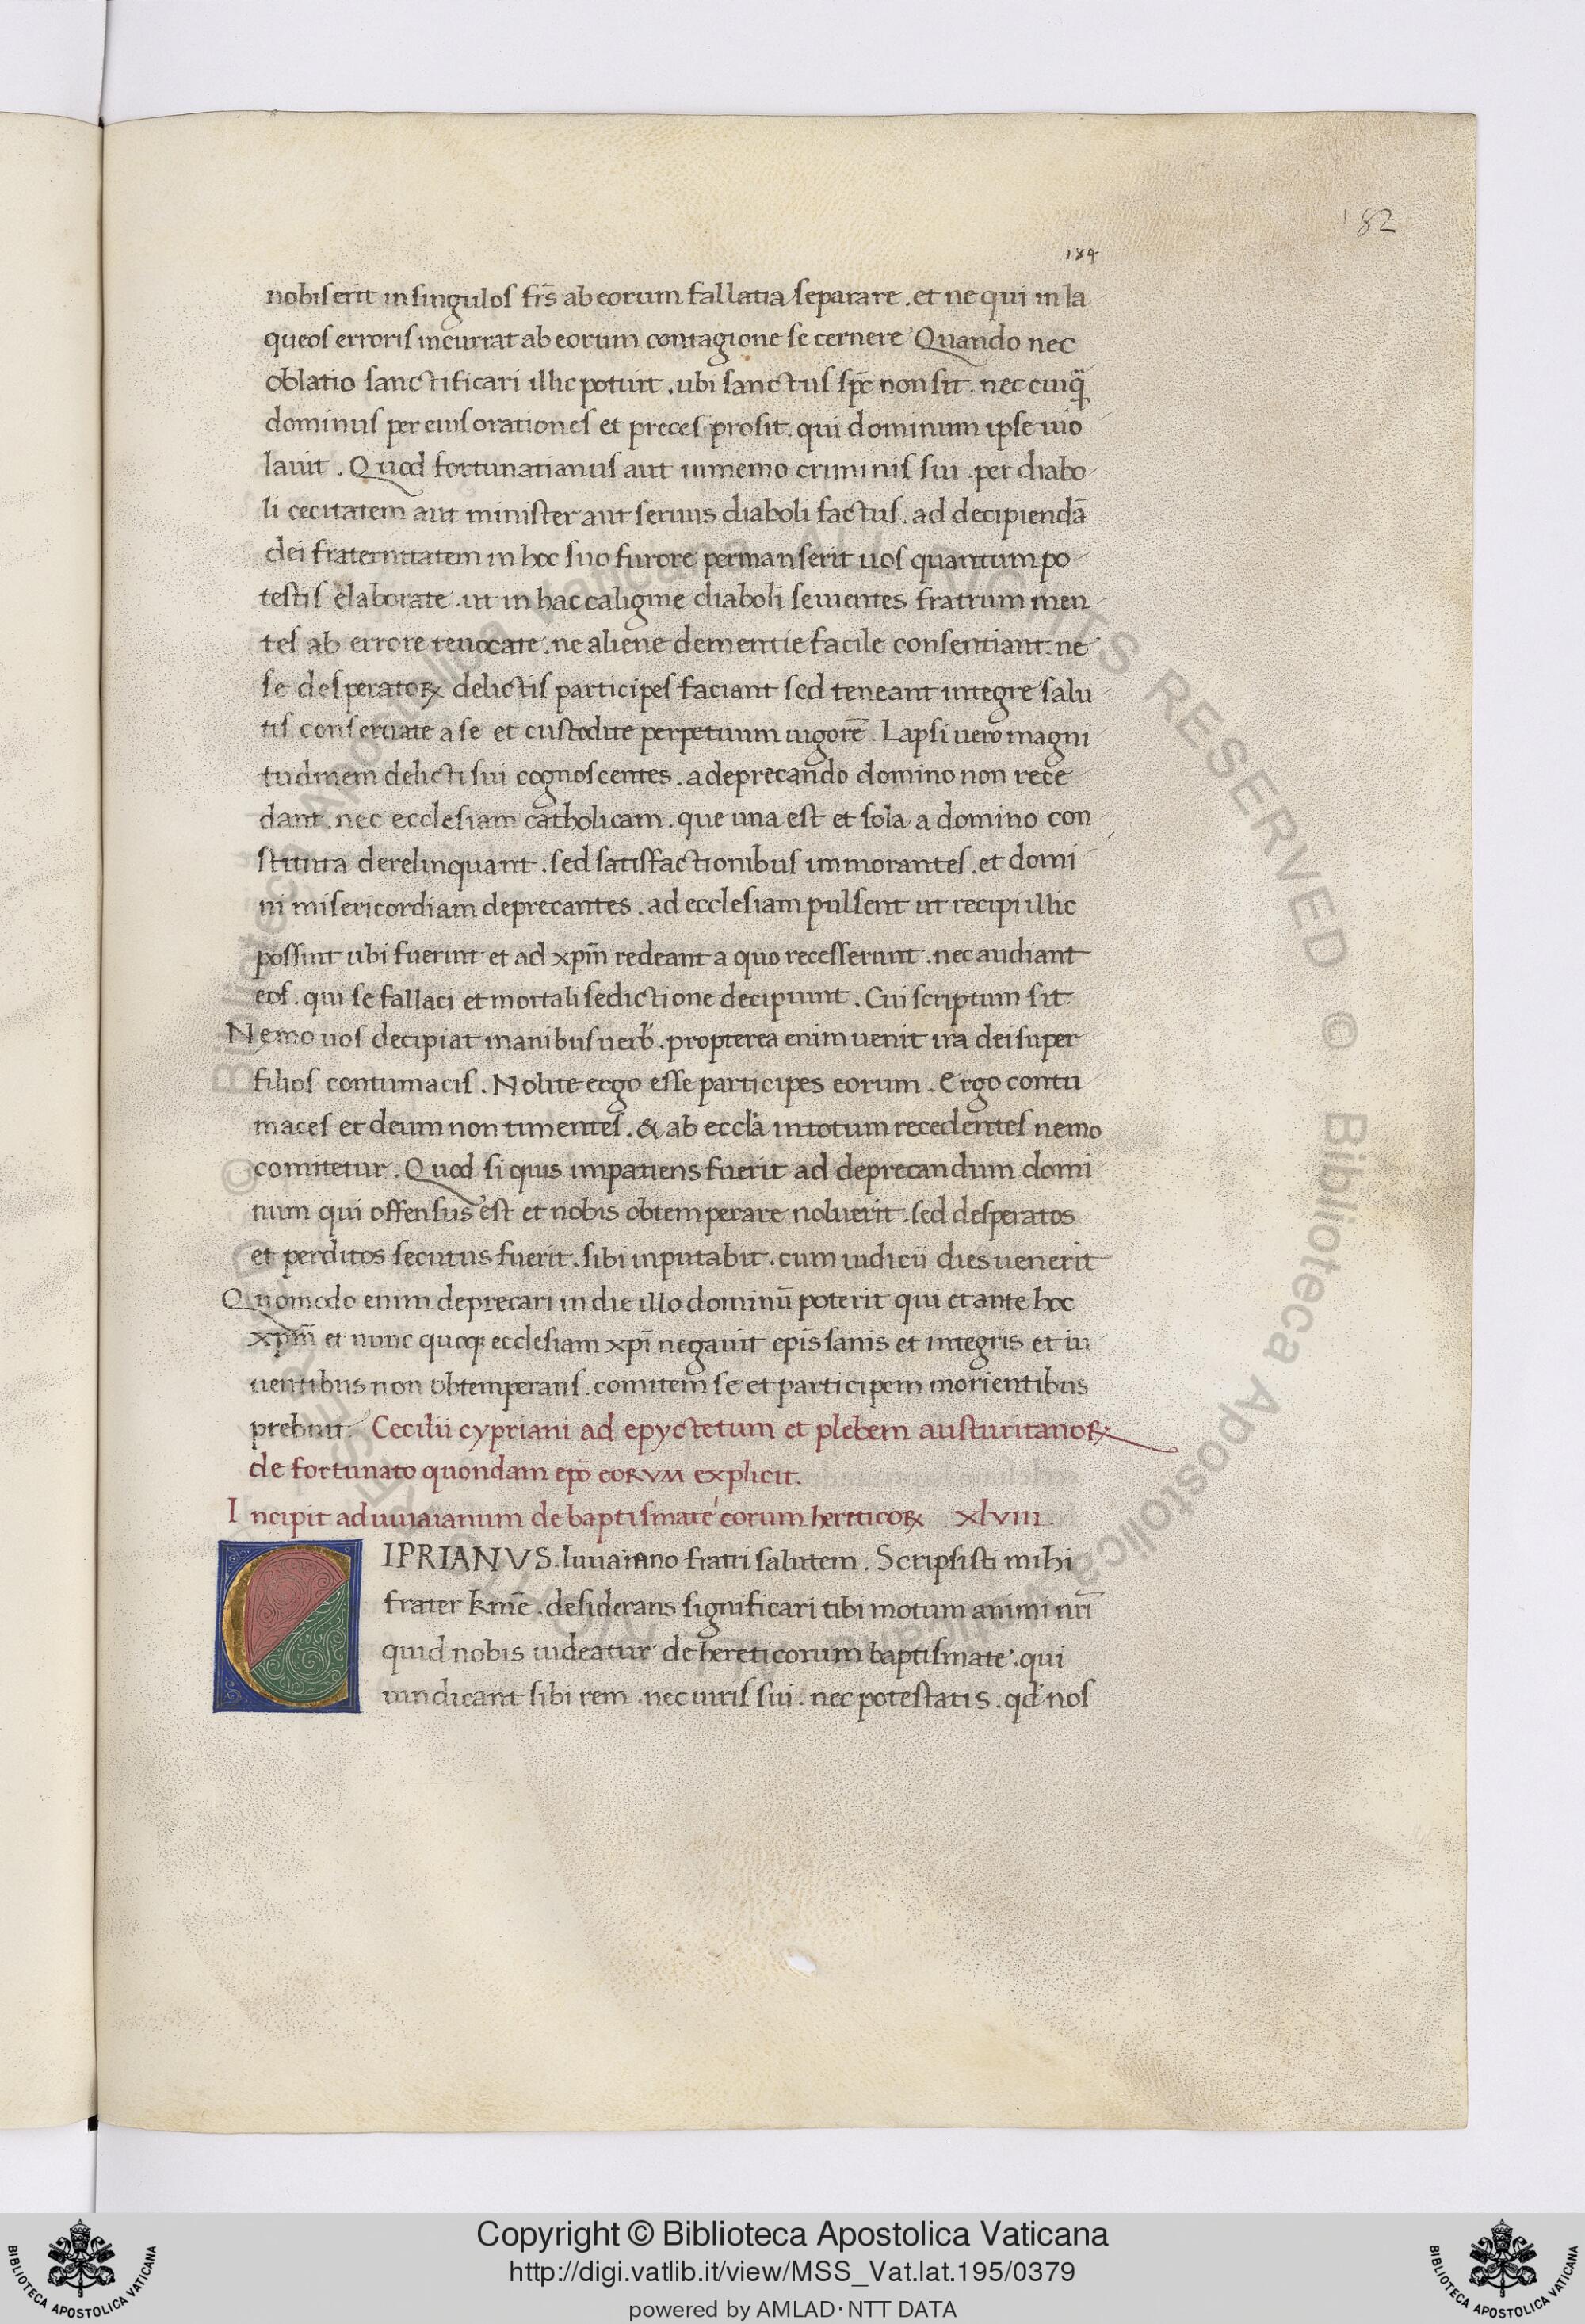 182
184
nobis erit in singulos frs̄ ab eorum fallatia separare . et ne qui in la
queos erroris incurrat ab eorum contagione se cernere Quando nec
oblatio sanctificari illic poturt . ubi sanctus sp̄c non sit . nec cuiq̄
dominus per eius orationes et preces prosit . qui dominum ipse uio
lauit . Quod fortunatianus aut inmemo criminis sui . per diabo
li cecitatem aut minister aut seruus diaboli factus . ad decipiendā
dei fraternitatem in hoc suo furore permanserit uos quantum po
testis elaborate . ut in hac caligine diaboli seuientes fratrum men
tes ab errore reuocate . ne aliene dementie facile consentiant . ne
se desperatoꝝ delictis participes faciant sed teneant integre salu
tis conseruate a se et custodite perpetuum uigorē . Lapsi uero magni
tudinem delicti sui cognoscentes . a deprecando domino non rece
dant . nec ecclesiam catholicam . que una est et sola a domino con
stituta derelinquant . sed satisfactionibus immorantes . et domi
ni misericordiam deprecantes . ad ecclesiam pulsent ut recipi illic
possint ubi fuerint et ad xpm̄ redeant a quo recesserunt . nec audiant
eos . qui se fallaci et mortali sedictione decipiunt . Cui scriptum sit .
Nemo uos decipiat manibus uerb̄ . propterea enim uenit ira dei super
filios contumacis . Nolite ergo esse participes eorum . Ergo contu
maces et deum non timentes . & ab eccl̄a in totum recedentes nemo
comitetur . Quod si quis impatiens fuerit ad deprecandum domi
num qui offensus est et nobis obtemperare noluerit . sed desperatos
et perditos secutus fuerit . sibi inputabit . cum iudicii dies uenerit
Quomodo enim deprecari in die illo dominū poterit qui et ante hoc
xpm̄ et nunc quoq; ecclesiam xpī negauit epīs sanis et integris et iu
uentibus non obtemperans . comitem se et participem morientibus
prebuit . Cecilii cypriani ad epyctetum et plebem austuritanoꝝ
de fortunato quondam epō eorum explicit .
Incipit ad iuuaianum de baptismate eorum hereticoꝝ . xlviii .
CIPRIANVS . Iuuaiano fratri salutem . Scripsisti mihi
frater kmē . desiderans significari tibi motum animi nrī
quid nobis uideatur de hereticorum baptismate . qui
uindicant sibi rem . nec iuris sui . nec potestatis . qd nos
© Biblioteca Apostolica Vaticana ALL RIGHTS RESERVED © Biblioteca Apostolica Vaticana ALL RIGHTS RESERVED
Copyright © Biblioteca Apostolica Vaticana
http://digi.vatlib.it/view/MSS_Vat.lat.195/0379
powered by AMLAD·NTT DATA
BIBLIOTECA APOSTOLICA VATICANA
BIBLIOTECA APOSTOLICA VATICANA